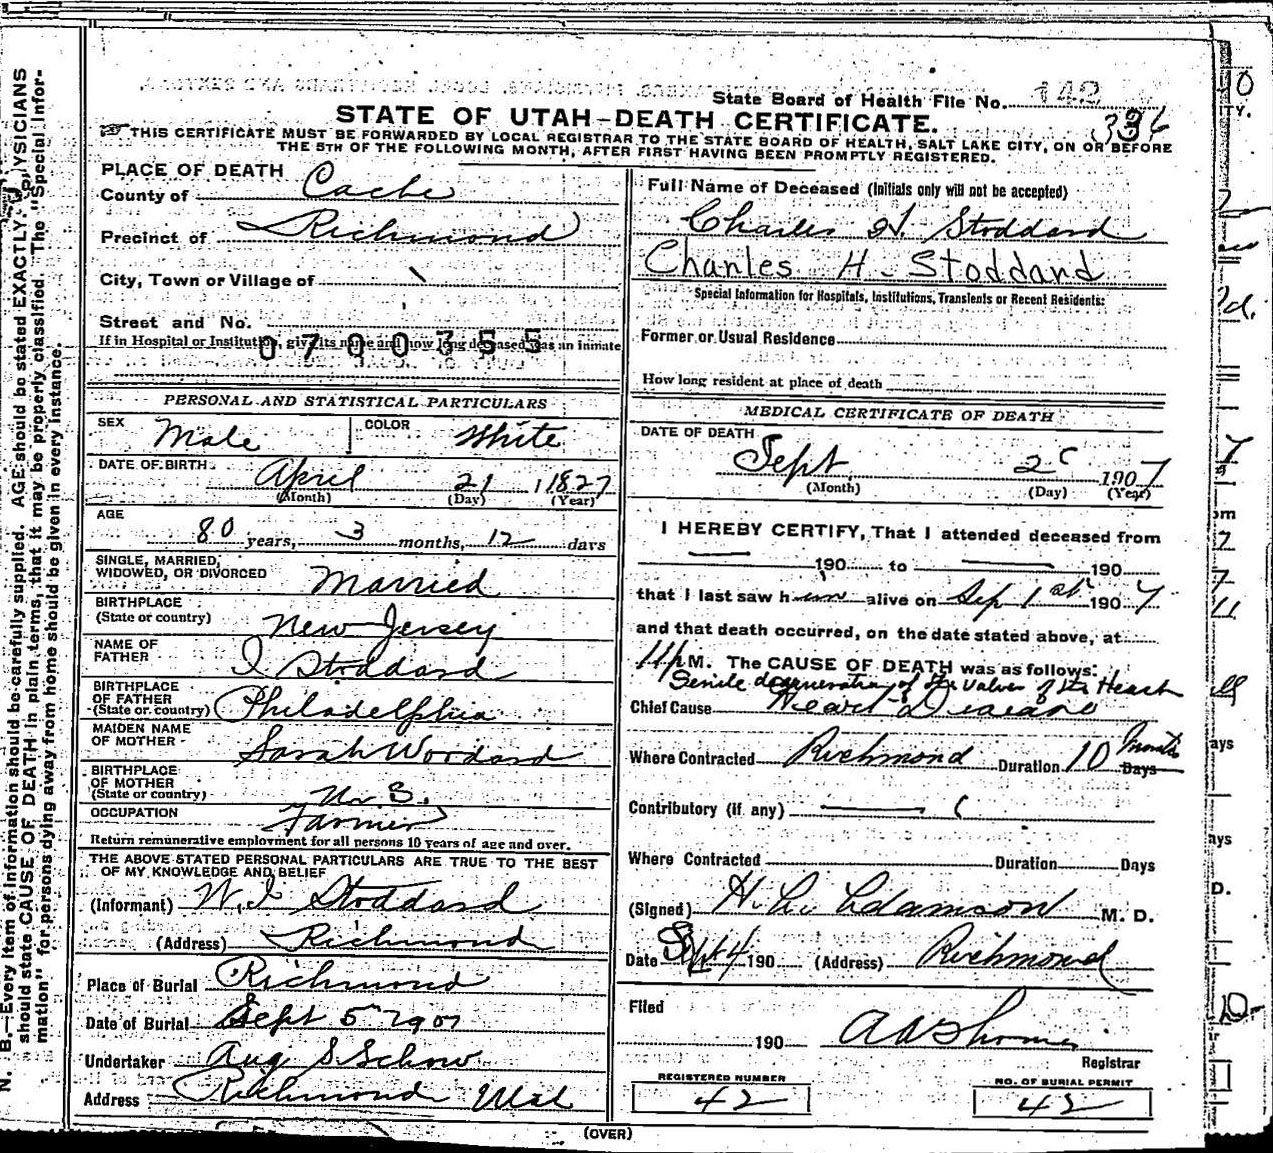 N. B.—Every item of information should be carefully supplied. AGE should be stated EXACTLY. PHYSICIANS
should state CAUSE OF DEATH in plain terms, that it may be properly classified. The "Special Infor-
mation" for persons dying away from home should be given in every instance.
State Board of Health File No. 142
336
STATE OF UTAH-DEATH CERTIFICATE.
THIS CERTIFICATE MUST BE FORWARDED BY LOCAL REGISTRAR TO THE STATE BOARD OF HEALTH, SALT LAKE CITY, ON OR BEFORE
THE 5TH OF THE FOLLOWING MONTH, AFTER FIRST HAVING BEEN PROMPTLY REGISTERED.
PLACE OF DEATH
County of Cache
Precinct of Richmond
City, Town or Village of
Street and No.
0700355
If in Hospital or Institution, give its name and how long deceased was an inmate
PERSONAL AND STATISTICAL PARTICULARS
SEX Male COLOR White
DATE OF BIRTH April 21 1827
(Month) (Day) (Year)
AGE
80 years, 3 months, 12 days
SINGLE, MARRIED,
WIDOWED, OR DIVORCED Married
BIRTHPLACE
(State or country) New Jersey
NAME OF
FATHER I Stoddard
BIRTHPLACE
OF FATHER
(State or country) Philadelphia
MAIDEN NAME
OF MOTHER Sarah Woodard
BIRTHPLACE
OF MOTHER
(State or country)
OCCUPATION Farmer
Return remunerative employment for all persons 10 years of age and over.
THE ABOVE STATED PERSONAL PARTICULARS ARE TRUE TO THE BEST
OF MY KNOWLEDGE AND BELIEF
(Informant) W. I Stoddard
(Address) Richmond
Place of Burial Richmond
Date of Burial Sept 5 1907
Undertaker Aug S Schow
Address Richmond Utah
Full Name of Deceased (Initials only will not be accepted)
Charles H. Stoddard
Charles H. Stoddard
Special Information for Hospitals, Institutions, Transients or Recent Residents:
Former or Usual Residence
How long resident at place of death
MEDICAL CERTIFICATE OF DEATH
DATE OF DEATH
Sept 2 1907
(Month) (Day) (Year)
I HEREBY CERTIFY, That I attended deceased from
190 to 190
that I last saw him alive on Sep 1st 1907
and that death occurred, on the date stated above, at
11 p M. The CAUSE OF DEATH was as follows:
Senile degeneration of the valves of the Heart
Chief Cause Heart Disease
Where Contracted Richmond Duration 10 Months Days
Contributory (if any)
Where Contracted Duration Days
(Signed) H. L. Adamson M. D.
Date Sept 4 190 (Address) Richmond
Filed
190
Registrar
REGISTERED NUMBER
42
NO. OF BURIAL PERMIT
42
(OVER)